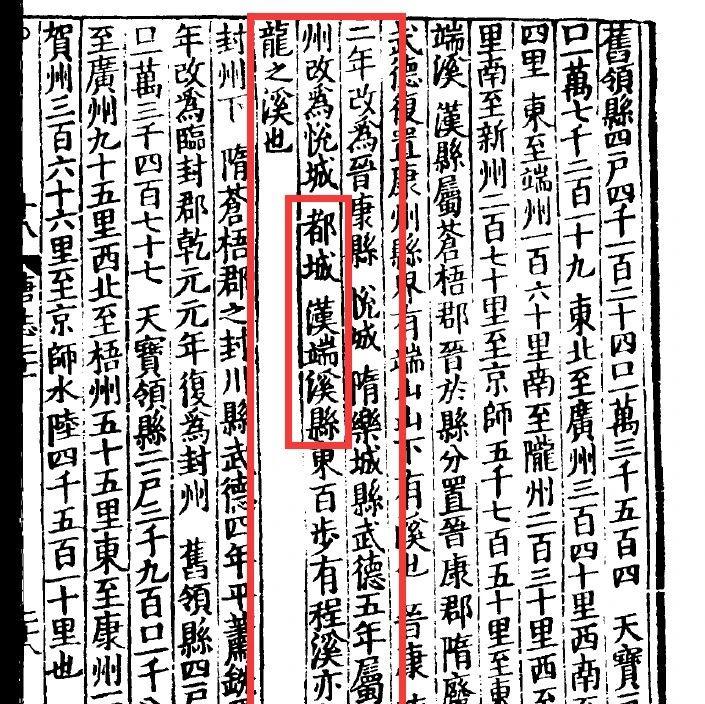 舊領縣四戶四千一百二十四口一萬三千五百四 天寶
口一萬七千二百一十九 東北至廣州三百四十里西南
四里 東至端州一百六十里南至隴州二百三十里西
里南至新州二百七十里至京師五千七百五十里至東
端溪 漢縣屬蒼梧郡晉於縣分置晉康郡隋廢
武德復置康州縣界有端山山下有溪也 晉康
二年改為晉康縣 悅城 隋樂城縣武德五年屬
州改為悅城 都城 漢端溪縣東百步有程溪亦
龍之溪也
封州下 隋蒼梧郡之封川縣武德四年平蕭銑
年改為臨封郡乾元元年復為封州 舊領縣四戶
口一萬三千四百七十七 天寶領縣二戶三千九百口一千
至廣州九十五里西北至梧州五十五里東至康州一
賀州三百六十六里至京師水陸四千五百一十里也